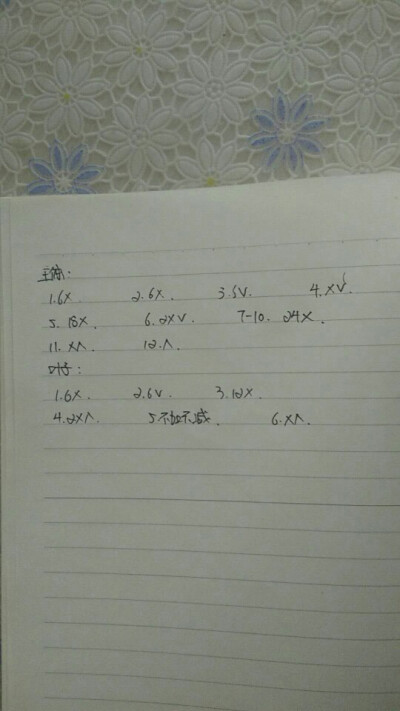 主体:
1.6X. 2.6X. 3.5V. 4.XV.
5.18X. 6.2XV. 7-10.24X.
11.XΛ. 12.Λ.
叶子:
1.6X. 2.6V. 3.12X.
4.2XΛ. 5不加不减. 6.XΛ.